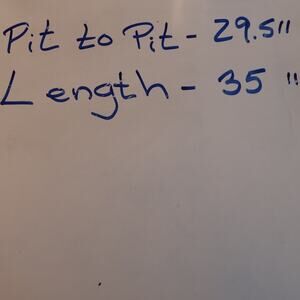 Pit to Pit - 29.5"
Length - 35 "